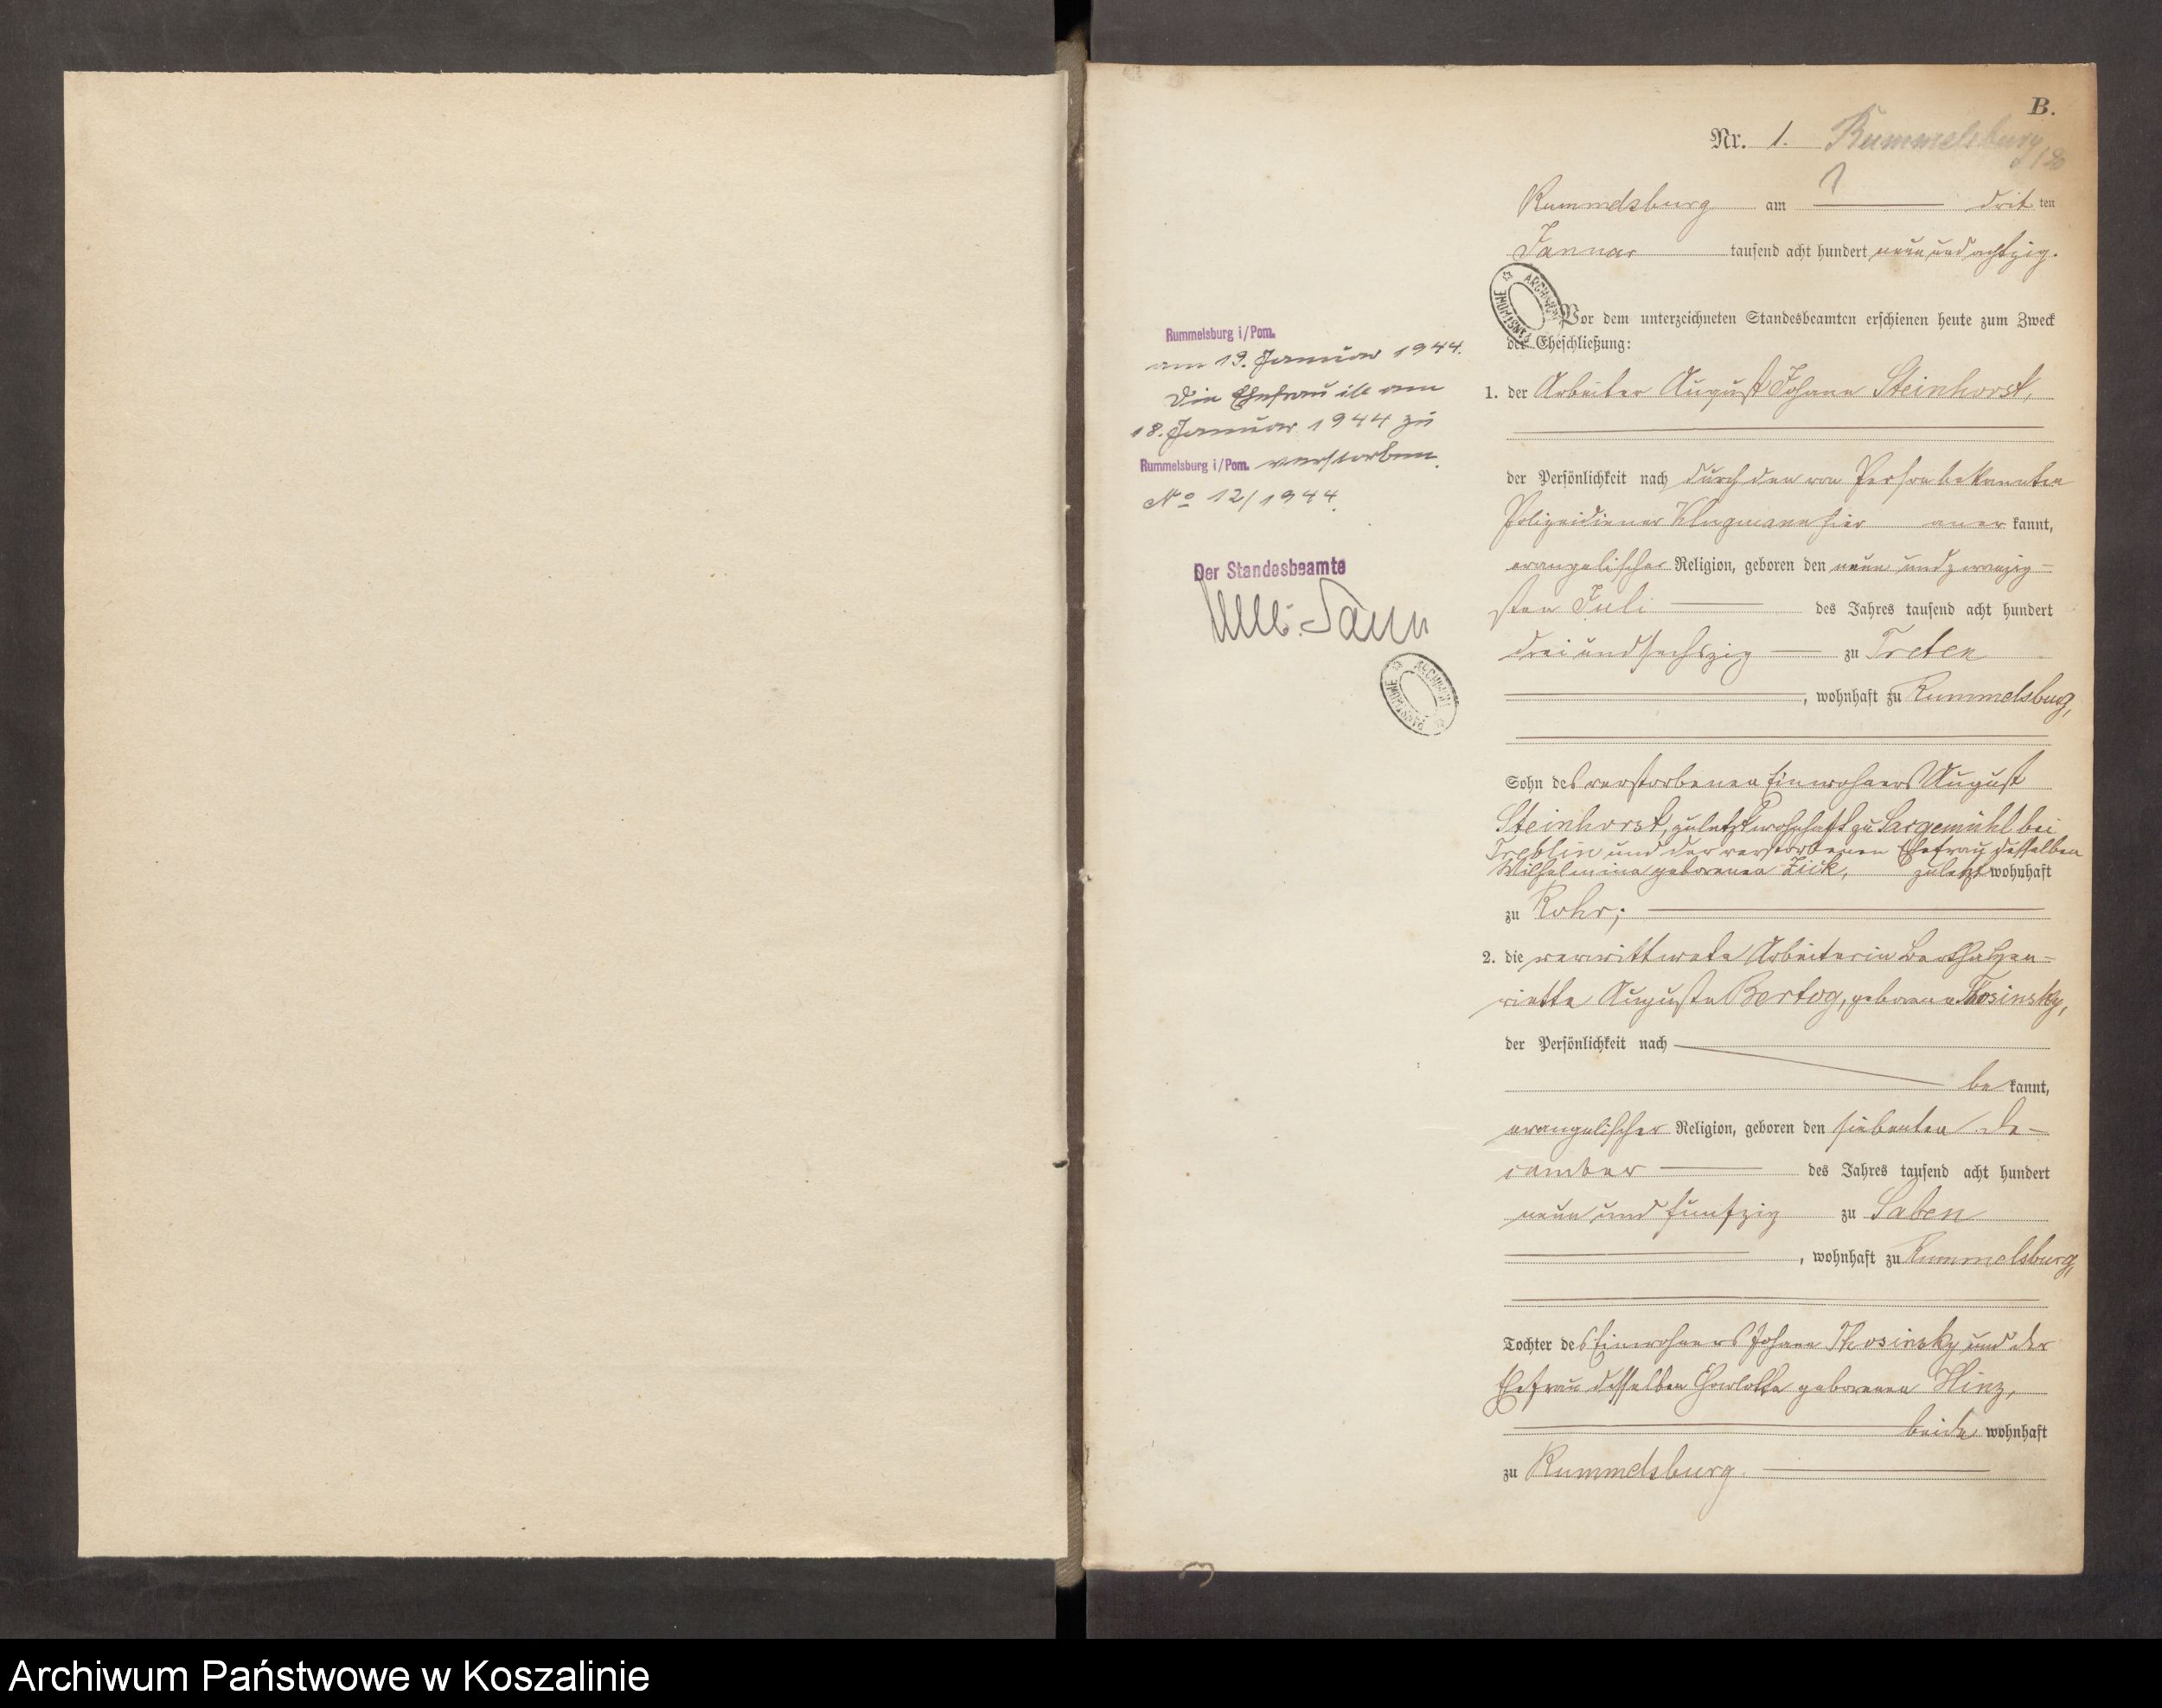 B.
Nr. 1. Rummelsburg
1
Rummelsburg am dritten
Januar tausend acht hundert neun und achtzig.
Vor dem unterzeichneten Standesbeamten erschienen heute zum Zweck
der Eheschließung:
1. der Arbeiter August Johann Steinhorst,
der Persönlichkeit nach durch den von Person bekannten
Polizeidiener Klugmann hier anerkannt,
evangelischer Religion, geboren den neun und zwanzig-
sten Juli des Jahres tausend acht hundert
drei und sechszig zu Treten
, wohnhaft zu Rummelsburg,
Sohn des verstorbenen Einwohners August
Steinhorst, zuletzt wohnhaft zu Sargemühl bei
Treblin und der verstorbenen Ehefrau desselben
Wilhelmine geborenen Zick, zuletzt wohnhaft
zu Rohr;
2. die verwittwete Arbeiterin Bertha Hen-
riette Auguste Bertog, geborene Kosinsky,
der Persönlichkeit nach
bekannt,
evangelischer Religion, geboren den siebenten De-
cember des Jahres tausend acht hundert
neun und fünfzig zu Saben
, wohnhaft zu Rummelsburg,
Tochter des Einwohners Johann Kosinsky und der
Ehefrau desselben Charlotte geborenen Hinz,
beide wohnhaft
zu Rummelsburg.
Rummelsburg i/Pom.
am 19. Januar 1944.
Die Ehefrau ist am
18. Januar 1944 zu
Rummelsburg i/Pom. verstorben.
No 12/1944.
Der Standesbeamte
ARCHIWUM PAŃSTWOWE
ARCHIWUM PAŃSTWOWE
Archiwum Państwowe w Koszalinie